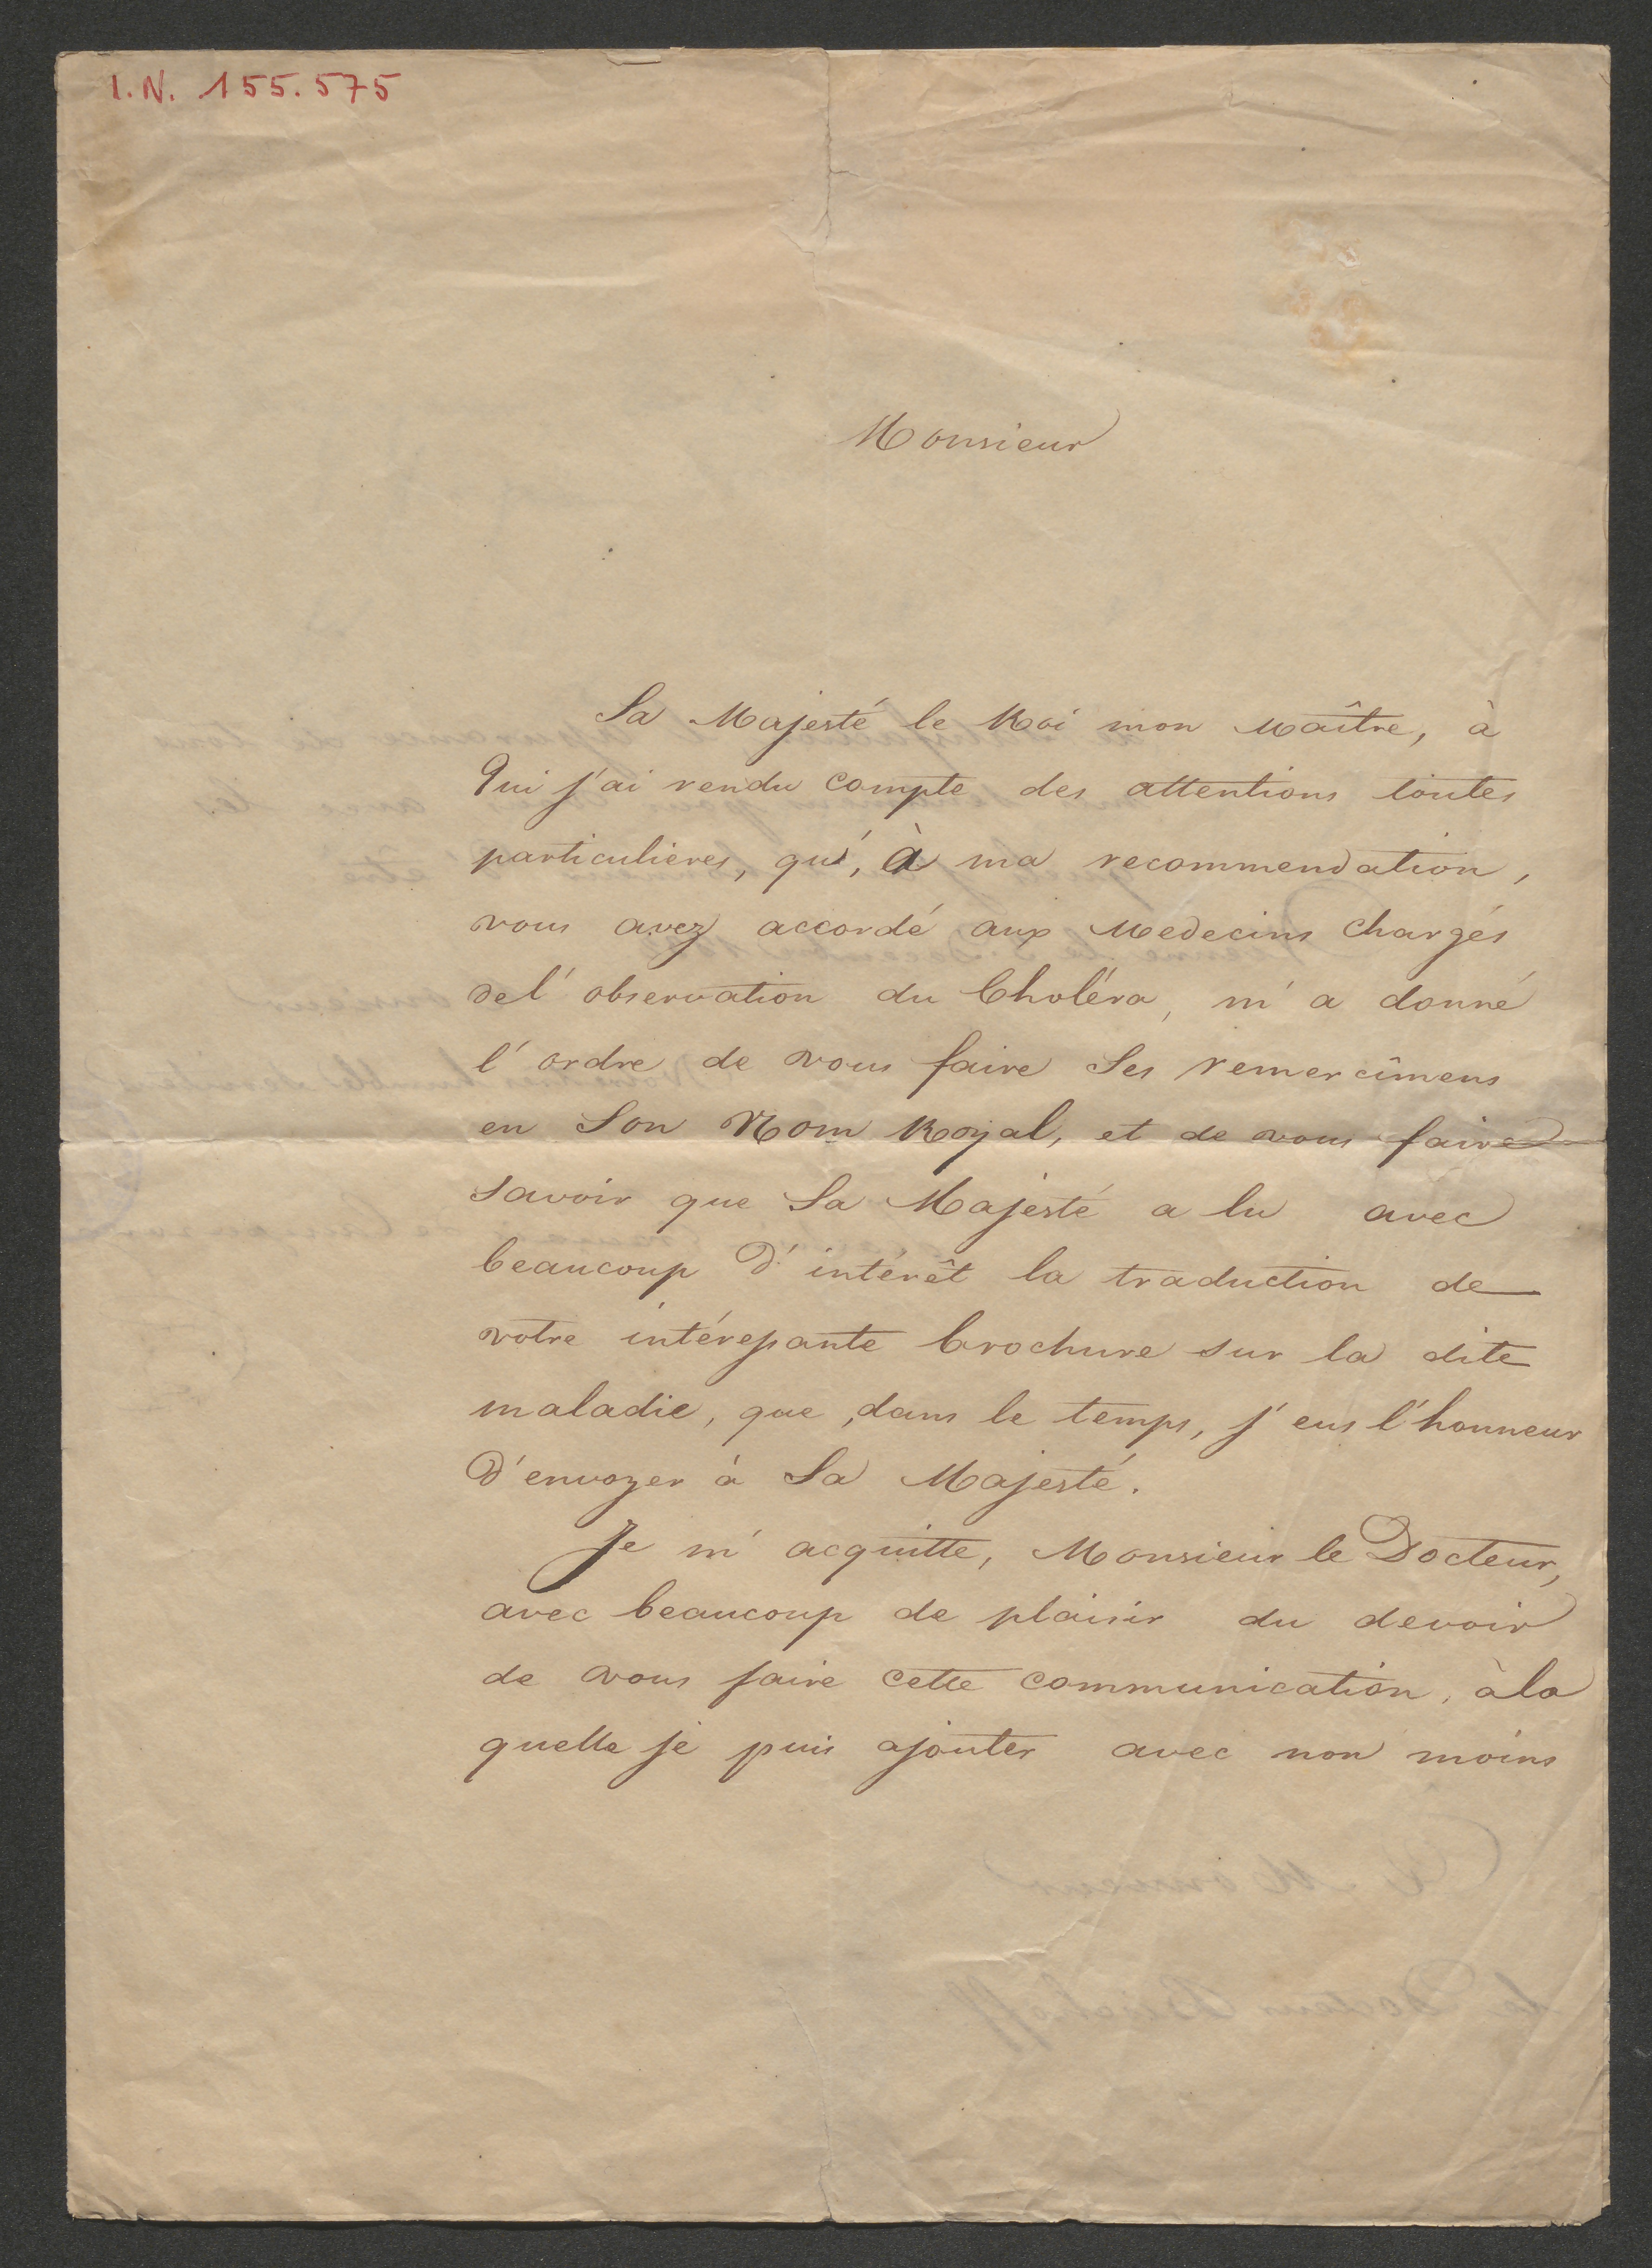 I.N. 155.575
Monsieur
Sa Majesté le Roi mon Maître, à
Qui j'ai rendu compte des attentions toutes
particulieres, qu', à ma recommendation,
vous avez accordé aux Medecins chargés
de l'observation du Choléra, m'a donné
l'ordre de vous faire Ses remercîmens
en Son Nom Royal, et de vous faire
savoir que Sa Majesté a lu avec
beaucoup d'intérêt la traduction de
votre intéressante brochure sur la dite
maladie, que, dans le temps, j'eus l'honneur
d'envoyer à Sa Majesté.
Je m'acquitte, Monsieur le Docteur,
avec beaucoup de plaisir du devoir
de vous faire cette communication, à la
quelle je puis ajouter avec non moins